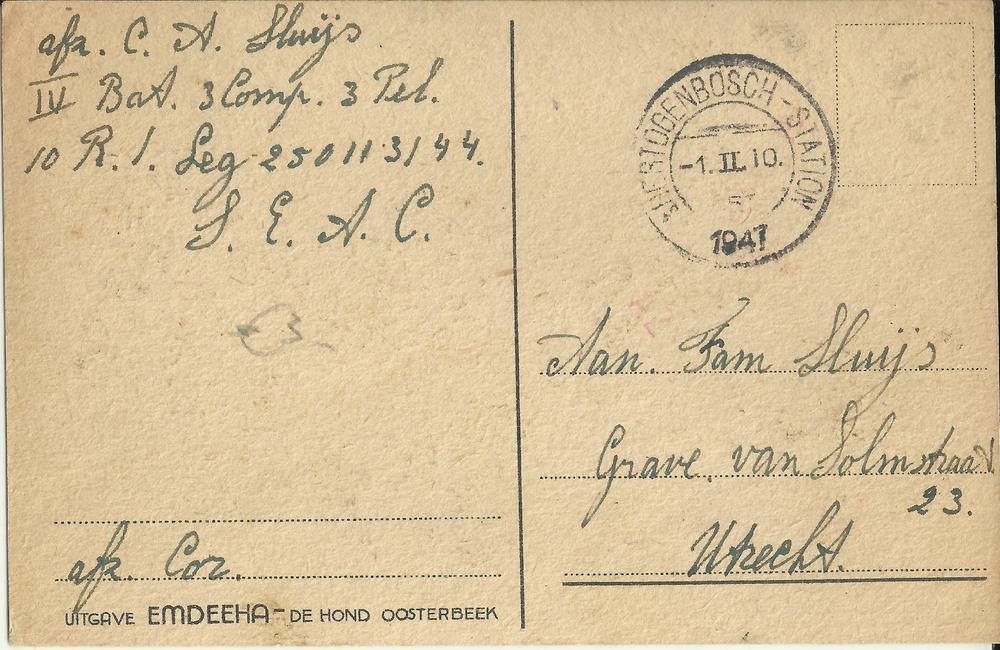 afz. C. A. Sluijs
IV Bat. 3 Comp. 3 Pel.
10 R. I. Leg 250113144.
S. E. A. C.
afz. Cor.
UITGAVE EMDEEHA - DE HOND OOSTERBEEK
'S HERTOGENBOSCH - STATION
-1. II. 10.
1947
Aan. Fam Sluijs
Grave van Solmstraat
23.
Utrecht.